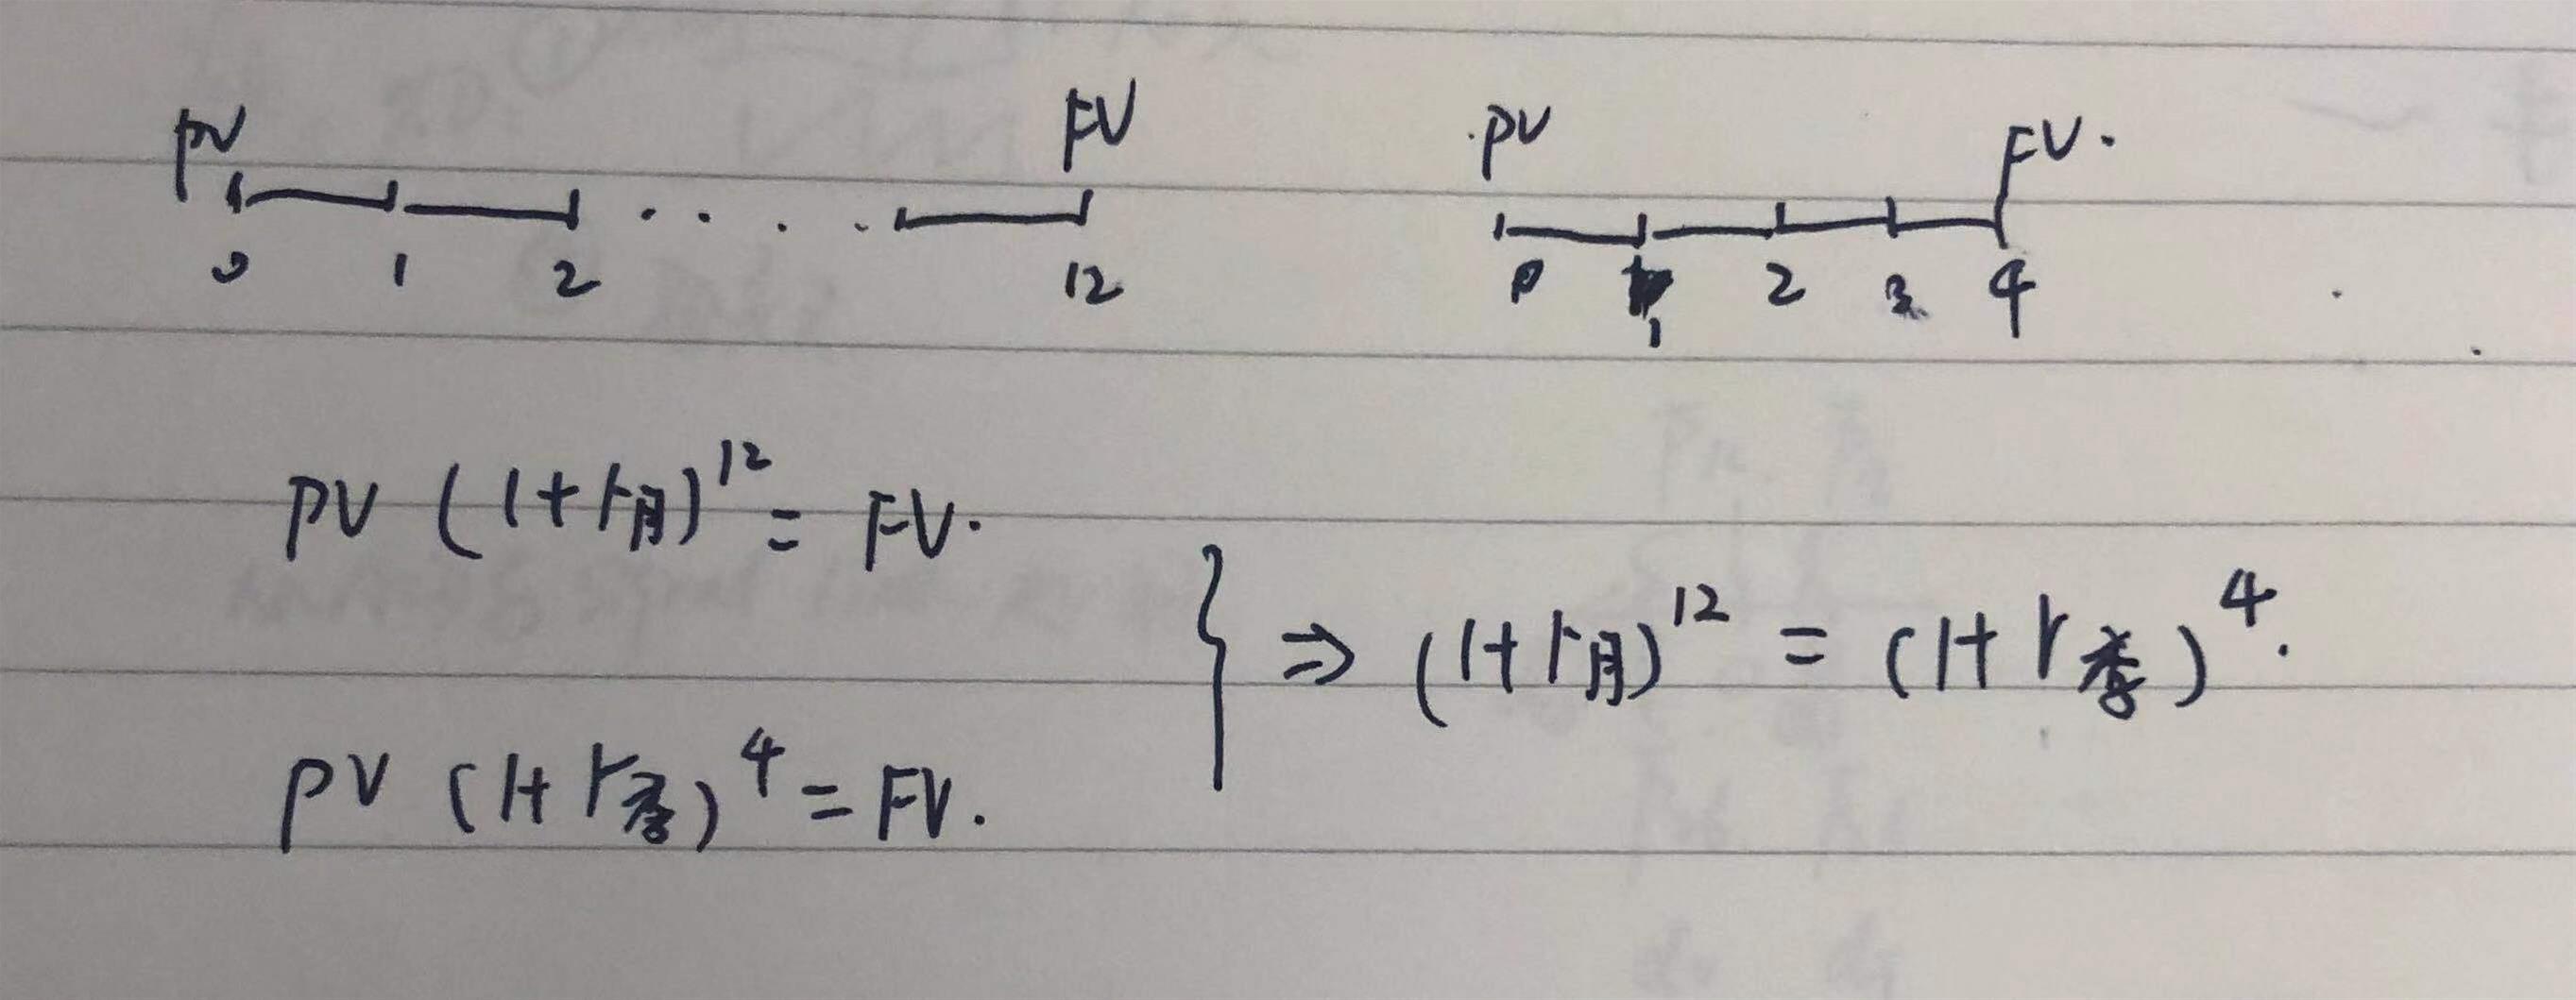 PV FV PV FV.
0 1 2 .... 12 0 1 2 3 4
PV (1+r月)^12 = FV.
} ⇒ (1+r月)^12 = (1+r季)^4.
PV (1+r季)^4 = FV.